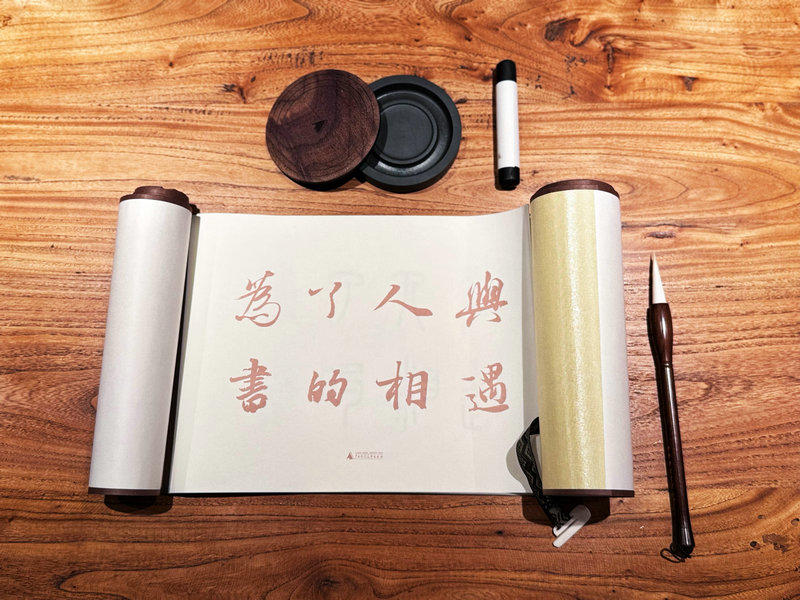 為了人與
書的相遇